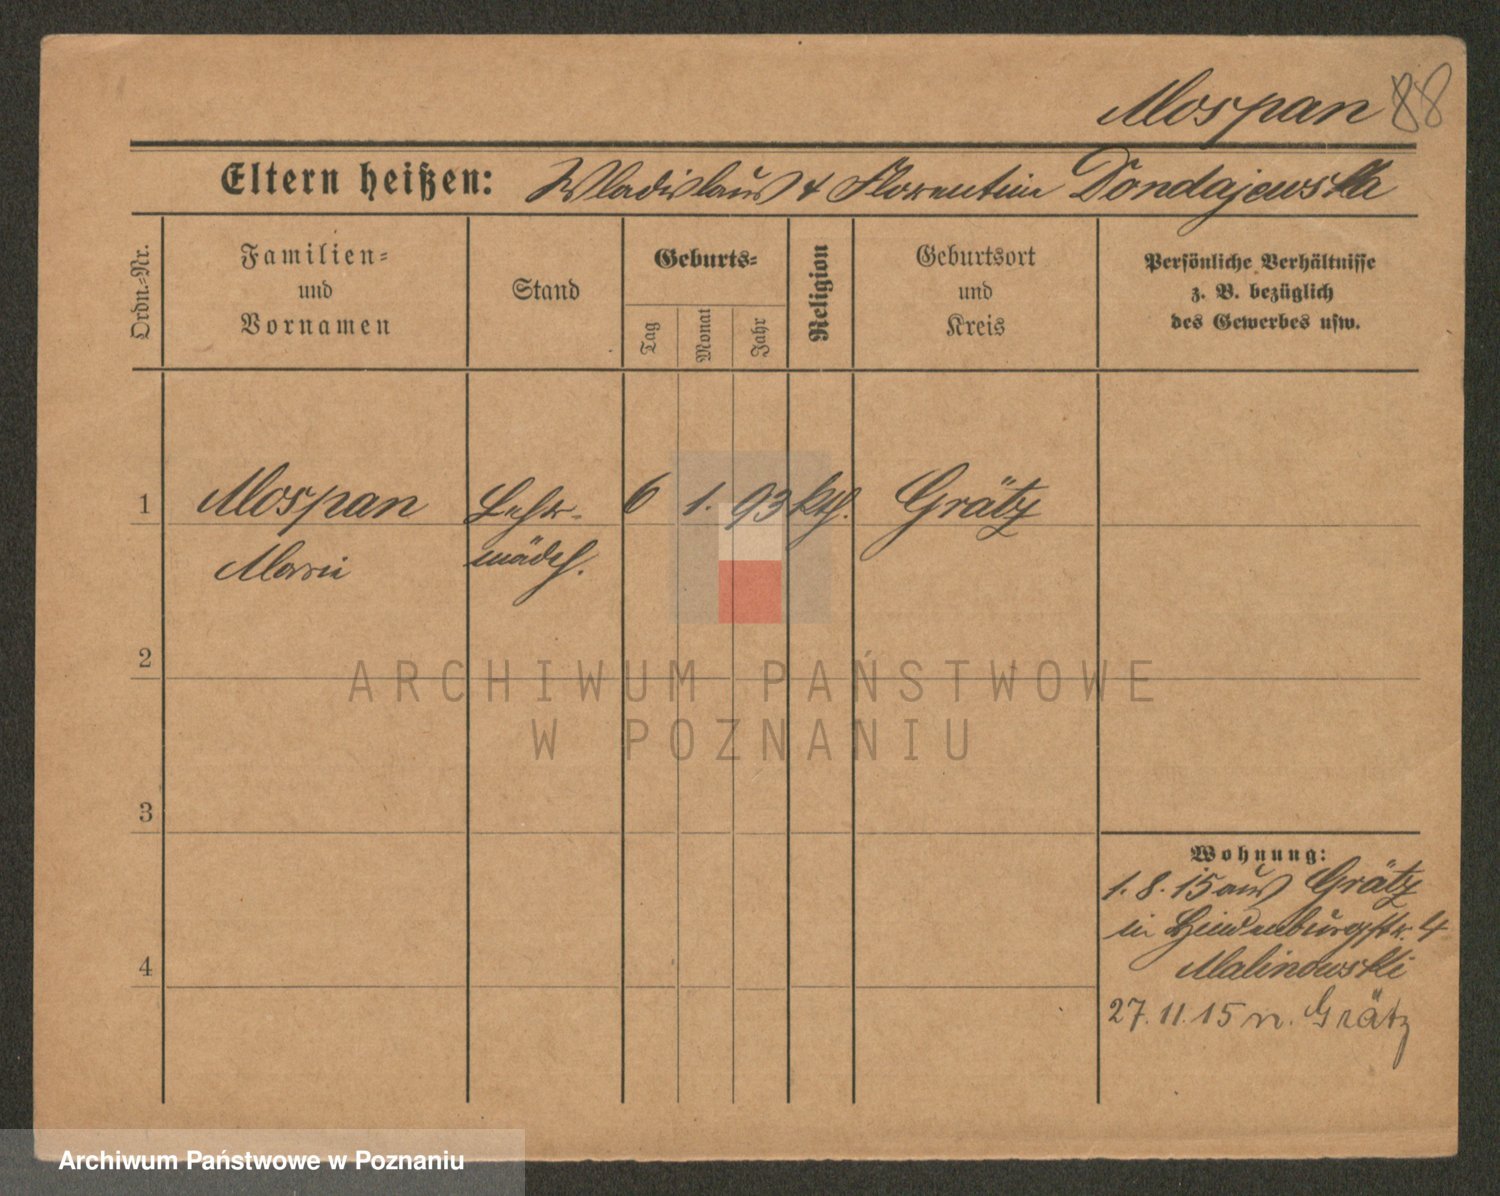 Mospan 88
Eltern heißen: Wladislaus & Florentine Dondajewska
Ordn.-Nr.
Familien-
und
Vornamen
Stand
Geburts-
Tag
Monat
Jahr
Religion
Geburtsort
und
Kreis
Persönliche Verhältnisse
z. B. bezüglich
des Gewerbes usw.
1 Mospan Lehr- 6 1. 93 kth. Grätz
Marie mädch.
2
ARCHIWUM PAŃSTWOWE
W POZNANIU
3
Wohnung:
1. 8. 15 aus Grätz
in Hindenburgstr. 4
4
Malinowski
27. 11. 15 n. Grätz
Archiwum Państwowe w Poznaniu